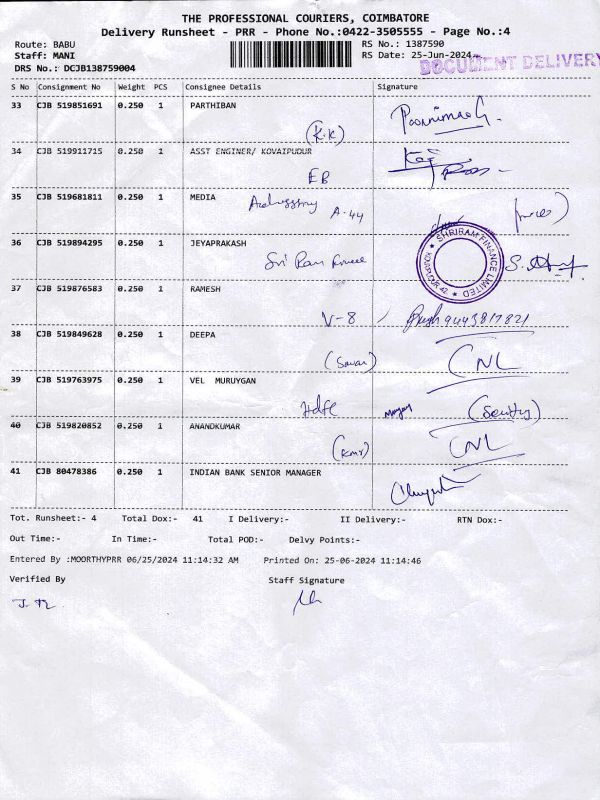 THE PROFESSIONAL COURIERS, COIMBATORE
Delivery Runsheet - PRR - Phone No.:0422-3505555 - Page No.:4
Route: BABU RS No.: 1387590
Staff: MANI RS Date: 25-Jun-2024
DRS No.: DCJB138759004 DOCUMENT DELIVERY
S No Consignment No Weight PCS Consignee Details Signature
33 CJB 519851691 0.250 1 PARTHIBAN
(K.K)
34 CJB 519911715 0.250 1 ASST ENGINER/ KOVAIPUDUR
EB
35 CJB 519681811 0.250 1 MEDIA
A-44
36 CJB 519894295 0.250 1 JEYAPRAKASH
SHRIRAM FINANCE LIMITED
Sri Ram
37 CJB 519876583 0.250 1 RAMESH
V-8 9443817821
38 CJB 519849628 0.250 1 DEEPA
CNL
39 CJB 519763975 0.250 1 VEL MURUYGAN
Hdfc
40 CJB 519820852 0.250 1 ANANDKUMAR
(KMR) CNL
41 CJB 80478386 0.250 1 INDIAN BANK SENIOR MANAGER
Tot. Runsheet:- 4 Total Dox:- 41 I Delivery:- II Delivery:- RTN Dox:-
Out Time:- In Time:- Total POD:- Delvy Points:-
Entered By :MOORTHYPRR 06/25/2024 11:14:32 AM Printed On: 25-06-2024 11:14:46
Verified By Staff Signature